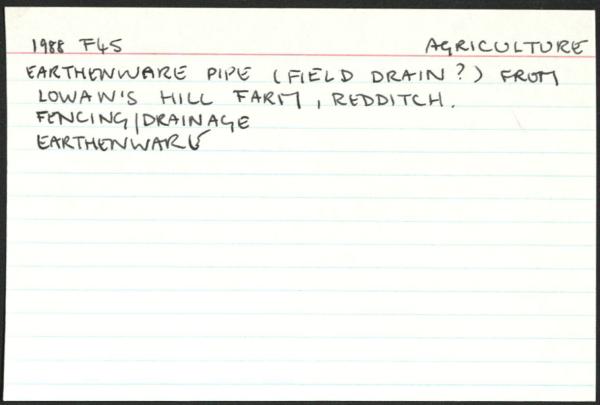 1988 F45 AGRICULTURE
EARTHENWARE PIPE (FIELD DRAIN?) FROM
LOWAN'S HILL FARM, REDDITCH.
FENCING/DRAINAGE
EARTHENWARE